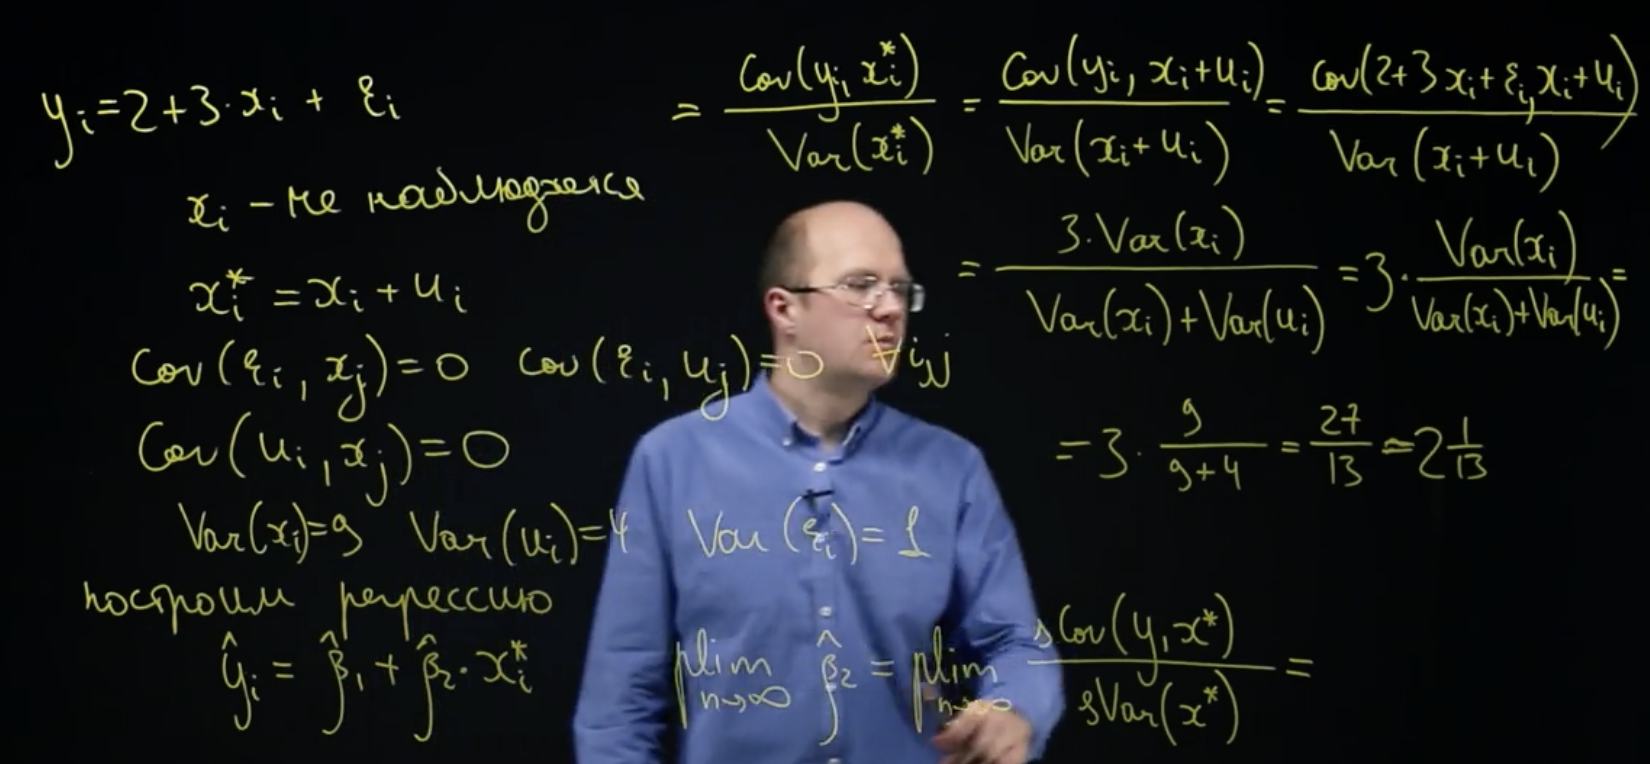 yᵢ = 2 + 3·xᵢ + εᵢ
xᵢ – не наблюдаемся
xᵢ* = xᵢ + uᵢ
Cov(εᵢ, xⱼ) = 0 cov(εᵢ, uⱼ) = 0 ∀ i,j
Cov(uᵢ, xⱼ) = 0
Var(xᵢ) = 9 Var(uᵢ) = 4 Var(εᵢ) = 1
построим регрессию
ŷᵢ = β̂₁ + β̂₂·xᵢ*
plim n→∞ β̂₂ = plim n→∞ sCov(y, x*) / sVar(x*) =
= Cov(yᵢ, xᵢ*) / Var(xᵢ*) = Cov(yᵢ, xᵢ + uᵢ) / Var(xᵢ + uᵢ) = cov(2 + 3xᵢ + εᵢ, xᵢ + uᵢ) / Var(xᵢ + uᵢ)
= 3·Var(xᵢ) / Var(xᵢ) + Var(uᵢ) = 3 · Var(xᵢ) / Var(xᵢ) + Var(uᵢ) =
= 3 · 9 / 9 + 4 = 27 / 13 = 2 1/13